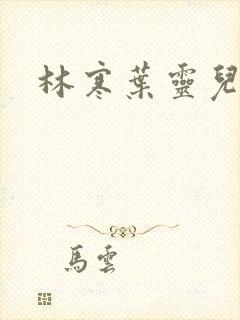 林寒葉靈兒
馬雲